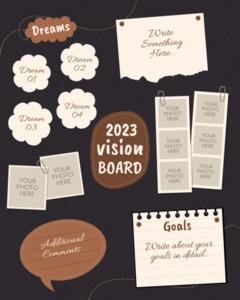 Dreams
Dream
01
Dream
02
Dream
03
Dream
04
Write
Something
Here...
YOUR
PHOTO
HERE
YOUR
PHOTO
HERE
YOUR
PHOTO
HERE
YOUR
PHOTO
HERE
YOUR
PHOTO
HERE
YOUR
PHOTO
HERE
2023
vision
BOARD
YOUR
PHOTO
HERE
YOUR
PHOTO
HERE
Additional
Comments
Goals
Write about your
goals in detail...